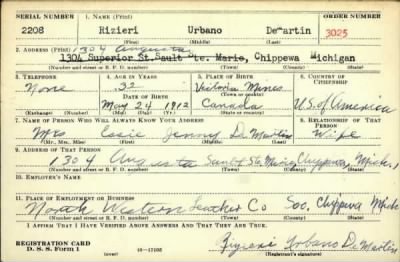 SERIAL NUMBER 1. NAME (Print) ORDER NUMBER
2208 Rizieri Urbano DeMartin 3025
(First) (Middle) (Last)
2. ADDRESS (Print) 1304 Augusta
1304 Superior St. Sault Ste. Marie, Chippewa Michigan
(Number and street or R. F. D. number) (Town) (County) (State)
3. TELEPHONE 4. AGE IN YEARS 5. PLACE OF BIRTH 6. COUNTRY OF CITIZENSHIP
None 32 Victoria Mines
DATE OF BIRTH (Town or county)
May 24 1912 Canada U.S. of America
(Exchange) (Number) (Mo.) (Day) (Yr.) (State or country)
7. NAME OF PERSON WHO WILL ALWAYS KNOW YOUR ADDRESS 8. RELATIONSHIP OF THAT PERSON
Mrs Jenny DeMartin Wife
(Mr., Mrs., Miss) (First) (Middle) (Last)
9. ADDRESS OF THAT PERSON
1304 Augusta Sault Ste Marie, Chippewa, Mich.
(Number and street or R. F. D. number) (Town) (County) (State)
10. EMPLOYER'S NAME
11. PLACE OF EMPLOYMENT OR BUSINESS
North Western Leather Co Soo, Chippewa Mich
(Number and street or R. F. D. number) (Town) (County) (State)
I AFFIRM THAT I HAVE VERIFIED ABOVE ANSWERS AND THAT THEY ARE TRUE.
REGISTRATION CARD
D. S. S. Form 1 (over) Urbano DeMartin
(Registrant's signature)